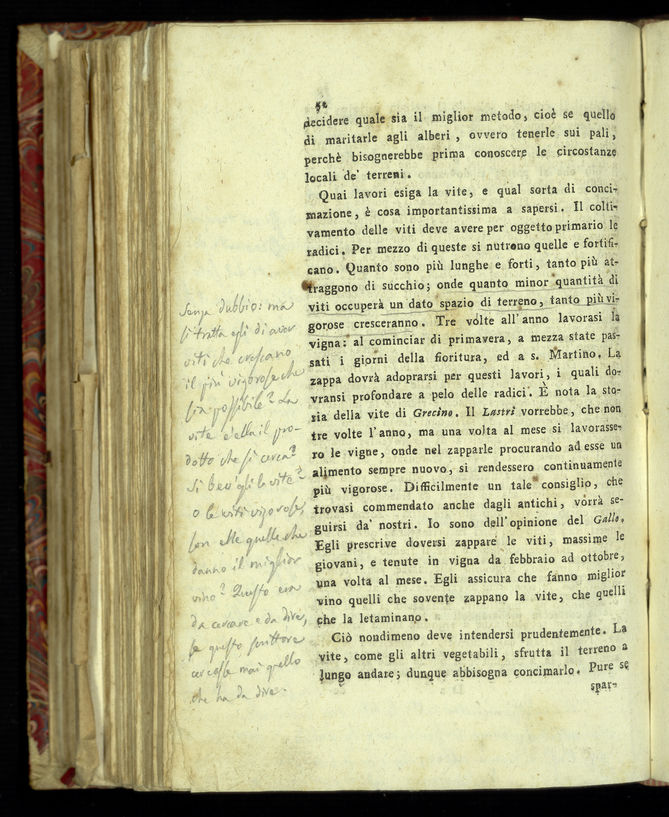 52
decidere quale sia il miglior metodo, cioè se quello
di maritarle agli alberi, ovvero tenerle sui pali,
perchè bisognerebbe prima conoscere le circostanze
locali de' terreni.
Quai lavori esiga la vite, e qual sorta di conci-
mazione, è cosa importantissima a sapersi. Il colti-
vamento delle viti deve avere per oggetto primario le
radici. Per mezzo di queste si nutrono quelle e fortifi-
cano. Quanto sono più lunghe e forti, tanto più at-
traggono di succhio; onde quanto minor quantità di
viti occuperà un dato spazio di terreno, tanto più vi-
gorose cresceranno. Tre volte all'anno lavorasi la
vigna: al cominciar di primavera, a mezza state pas-
sati i giorni della fioritura, ed a s. Martino. La
zappa dovrà adoprarsi per questi lavori, i quali do-
vransi profondare a pelo delle radici. È nota la sto-
ria della vite di Grecino. Il Lastri vorrebbe, che non
tre volte l'anno, ma una volta al mese si lavorasse-
ro le vigne, onde nel zapparle procurando ad esse un
alimento sempre nuovo, si rendessero continuamente
più vigorose. Difficilmente un tale consiglio, che
trovasi commendato anche dagli antichi, vorrà se-
guirsi da' nostri. Io sono dell'opinione del Gallo.
Egli prescrive doversi zappare le viti, massime le
giovani, e tenute in vigna da febbraio ad ottobre,
una volta al mese. Egli assicura che fanno miglior
vino quelli che sovente zappano la vite, che quelli
che la letaminano.
Ciò nondimeno deve intendersi prudentemente. La
vite, come gli altri vegetabili, sfrutta il terreno a
lungo andare; dunque abbisogna concimarlo. Pure se
spar-
Senza dubbio: ma
si tratta egli di aver
viti che crescano
il più vigorose che
sia possibile? La
vite è ella il pro-
dotto che si cerca?
Si bev'egli la vite?
O le viti vigorose,
son elle quelle che
danno il miglior
vino? Questo era
da cercare e da dire,
se questo scrittore
cercasse mai quello
che ha da dire.